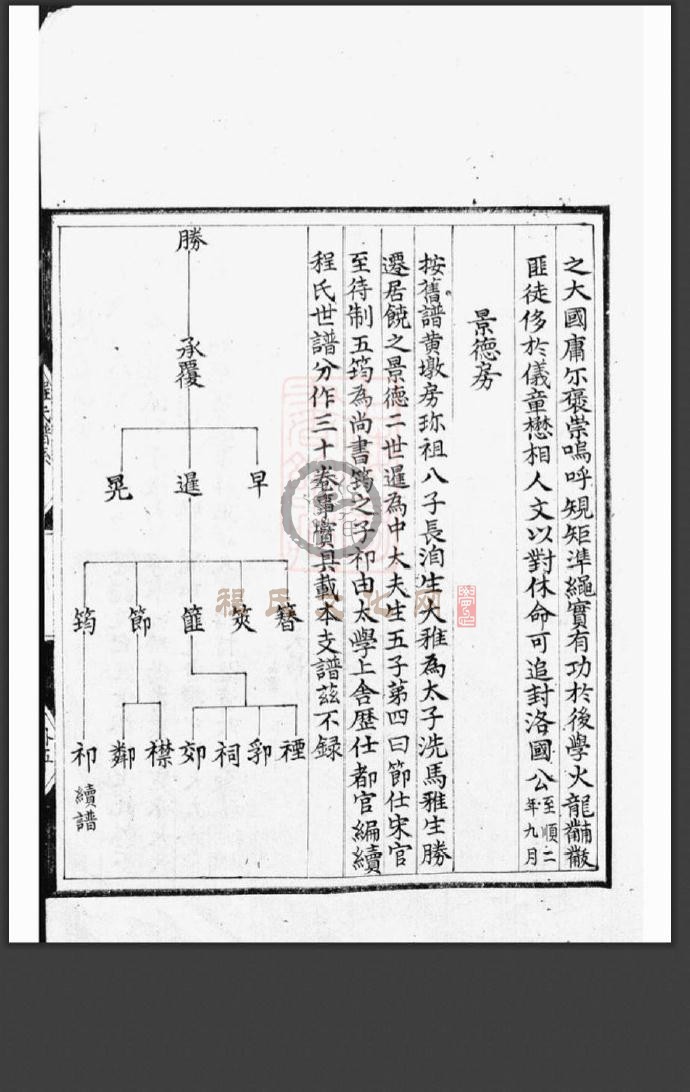 之大國庸尔褒崇嗚呼規矩準繩實有功於後學火龍黼黻
匪徒侈於儀章懋相人文以對休命可追封洛國公至順二年九月
景德房
按舊譜黄墩房珎祖八子長洵生大雅為太子洗馬雅生勝
遷居饒之景德二世暹為中大夫生五子第四曰節仕宋官
至待制五筠為尚書筠之子祁由太學上舍歷仕都官編續
程氏世譜分作三十卷事實具載本支譜茲不録
勝
承覆
早
暹
晃
簪
筴
篚
節
筠
禋
郛
祠
郊
襟
鄰
祁
續譜
程氏文化网